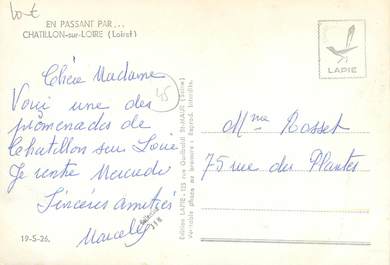 EN PASSANT PAR...
CHATILLON-sur-LOIRE (Loiret)
LAPIE
Chère Madame
Voici une des
promenades de
Chatillon sur Loire
Je rentre Mercredi
Sincères amitiés
Marcelle
19-5-26.
45
Edition LAPIE - 123 rue Garibaldi St-MAUR (Seine)
Véritable photo au bromure - Reprod. interdite.
Mme Rosset
75 rue des Plantes